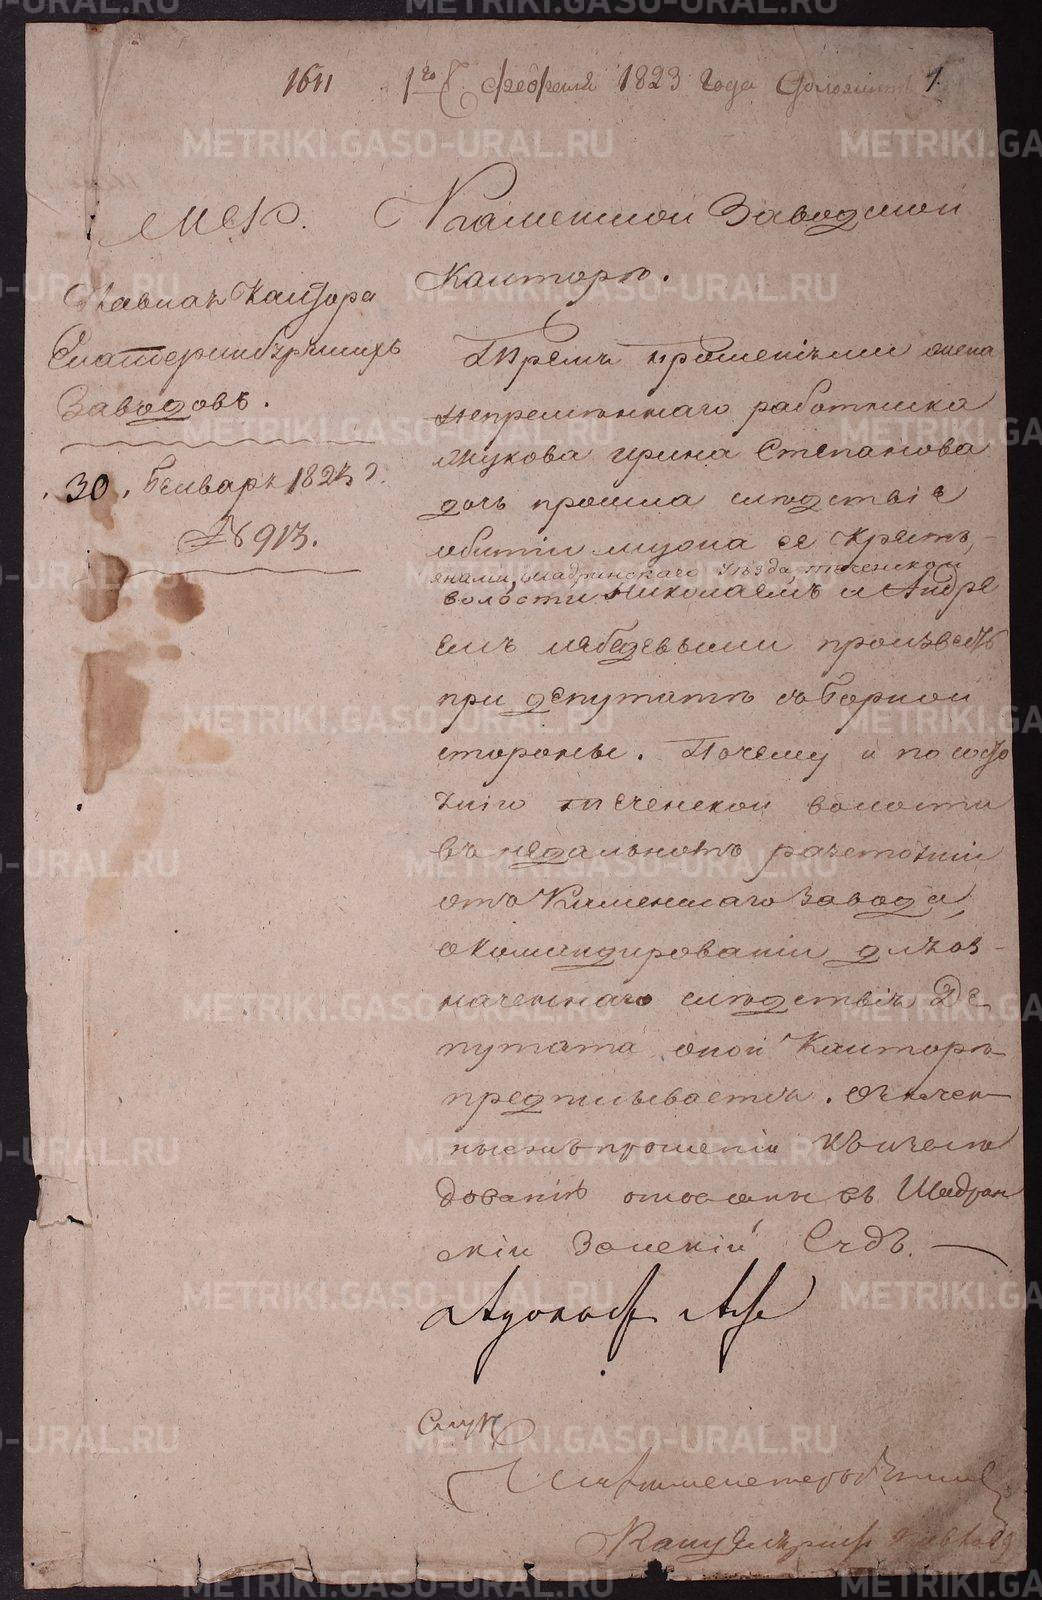 1611 1го февраля 1823 года 1.
Главная Кантора
Екатеринбургскихъ
Заводовъ.
30. Генваря 1823 г.
№ 913.
Каменской Заводской
Канторѣ.
Тремъ прошеніями жена
непремѣннаго работника
Жукова Ирина Степанова
дочь просила слѣдствіе
объ убитіи мужа ее крестья-
янами Шадринскаго уѣзда Теченской
волости Николаемъ и Андре
емъ Лебедевыми произвесть
при депутатѣ съ Горной
стороны. Почему и по состо
янію Теченской волости
въ недальномъ разстояніи
отъ Каменскаго завода,
о командированіи для оз-
наченнаго слѣдствія Де
путата оной Канторѣ
предписывается.
прошенія къ изслѣ
дованію отосланы въ Шадрин
скій Земскій Судъ.
METRIKI.GASO-URAL.RU